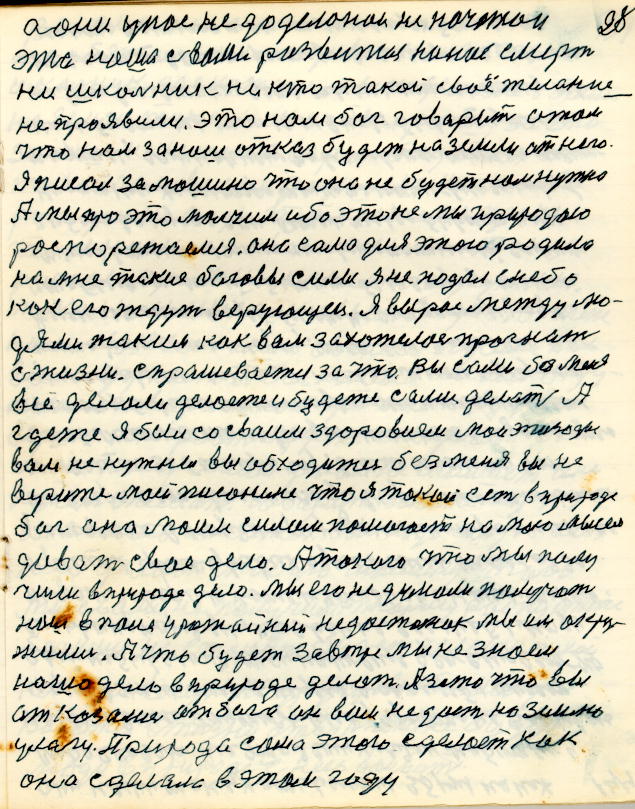 28
а они у нас не доделоной не початой
Это наша с вами развитея
ни школник ни кто такой своё желание
не проявили. Это нам бог говарит о том
что нам за наш отказ будет на земли от него.
Я писал за машино что она не будет нам нужно
А мы про это молчим ибо это не мы природаю
роспорежаемся. она сама для этого родило
на мне такие боговы силы я не подал с небо
как его ждут верующеи. Я вырос между лю-
дями таким как вам захотелос прогнат
с жизни. спрашеваетея за что. Вы сами без меня
всё делали делаете и будете сами делат А
где же я был со своим здоровием мои эти
вам не нужны вы обходитес без меня вы не
верите моей писонине что я такой ест в природе
бог она моим силам помогает на мою мысел
дават свое дело. А такого что мы полу
чили в природе дело. мы его не думали получат
наш в поле урожайный недостаток мы им окру-
жили. А что будет завтра мы не знаем
нашо дело в природе делат. А за то что вы
отказалис от бога он вам не даст на землю
улагу. Природа сама этого сделает как
она сделала в этом году